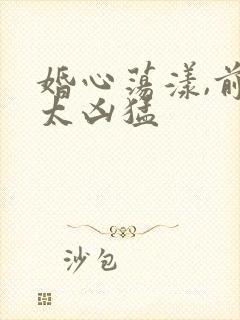 婚心荡漾,前
太凶猛
沙包